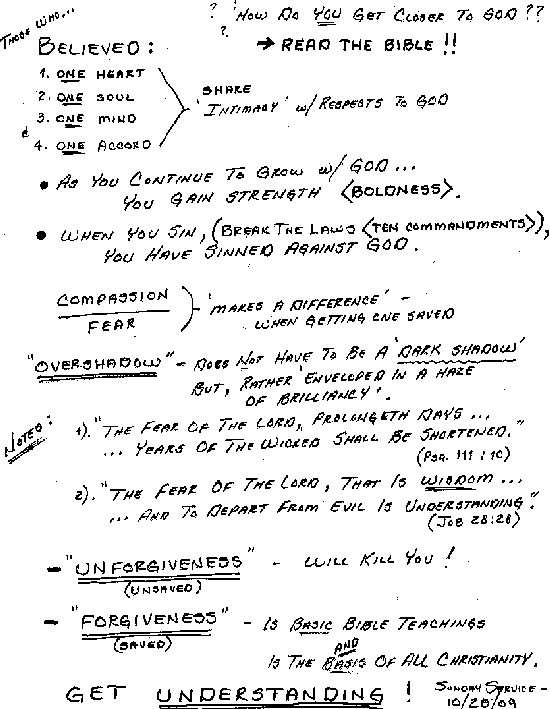 ? HOW DO YOU GET CLOSER TO GOD ??
?
→ READ THE BIBLE !!
THOSE WHO...
BELIEVED:
1. ONE HEART
2. ONE SOUL
3. ONE MIND
&
4. ONE ACCORD
SHARE
'INTIMACY' w/ RESPECTS TO GOD
• AS YOU CONTINUE TO GROW w/ GOD ...
YOU GAIN STRENGTH <BOLDNESS>.
• WHEN YOU SIN, (BREAK THE LAWS <TEN COMMANDMENTS>),
YOU HAVE SINNED AGAINST GOD.
COMPASSION
FEAR
'MAKES A DIFFERENCE' -
WHEN GETTING ONE SAVED
"OVERSHADOW" - DOES NOT HAVE TO BE A 'DARK SHADOW'
BUT, RATHER 'ENVELOPED IN A HAZE
OF BRILLIANCY'.
NOTED:
1). "THE FEAR OF THE LORD, PROLONGETH DAYS ...
... YEARS OF THE WICKED SHALL BE SHORTENED."
(PSA. 111:10)
2). "THE FEAR OF THE LORD, THAT IS WISDOM ...
... AND TO DEPART FROM EVIL IS UNDERSTANDING."
(JOB 28:28)
- "UNFORGIVENESS" - WILL KILL YOU !
(UNSAVED)
- "FORGIVENESS" - IS BASIC BIBLE TEACHINGS
(SAVED)
AND
IS THE BASIS OF ALL CHRISTIANITY.
GET UNDERSTANDING !
SUNDAY SERVICE -
10/28/09